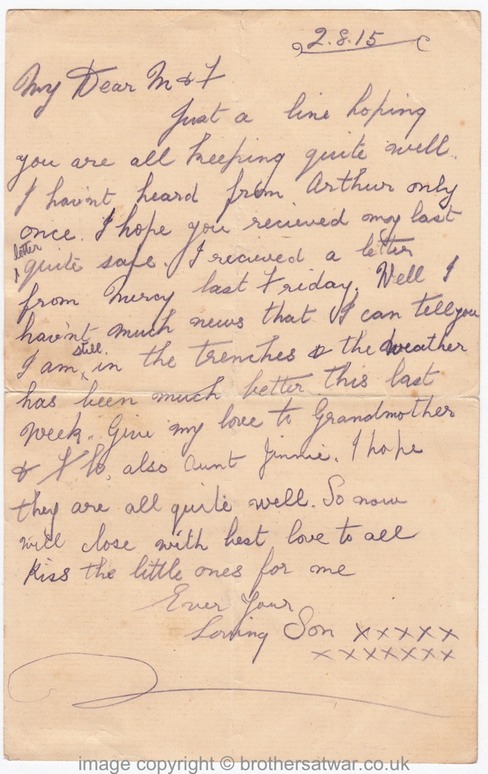 2.8.15
My Dear M & F
Just a line hoping
you are all keeping quite well.
I havnt heard from Arthur only
once. I hope you recieved my last
letter
quite safe. I recieved a letter
from Mercy last Friday. Well I
havnt much news that I can tell you
I am still in the trenches & the weather
has been much better this last
week. Give my love to Grandmother
& also Aunt Jinnie. I hope
they are all quite well. So now
will close with best love to all
Kiss the little ones for me
Ever Your
Loving Son xxxxx
xxxxxxx
image copyright © brothersatwar.co.uk